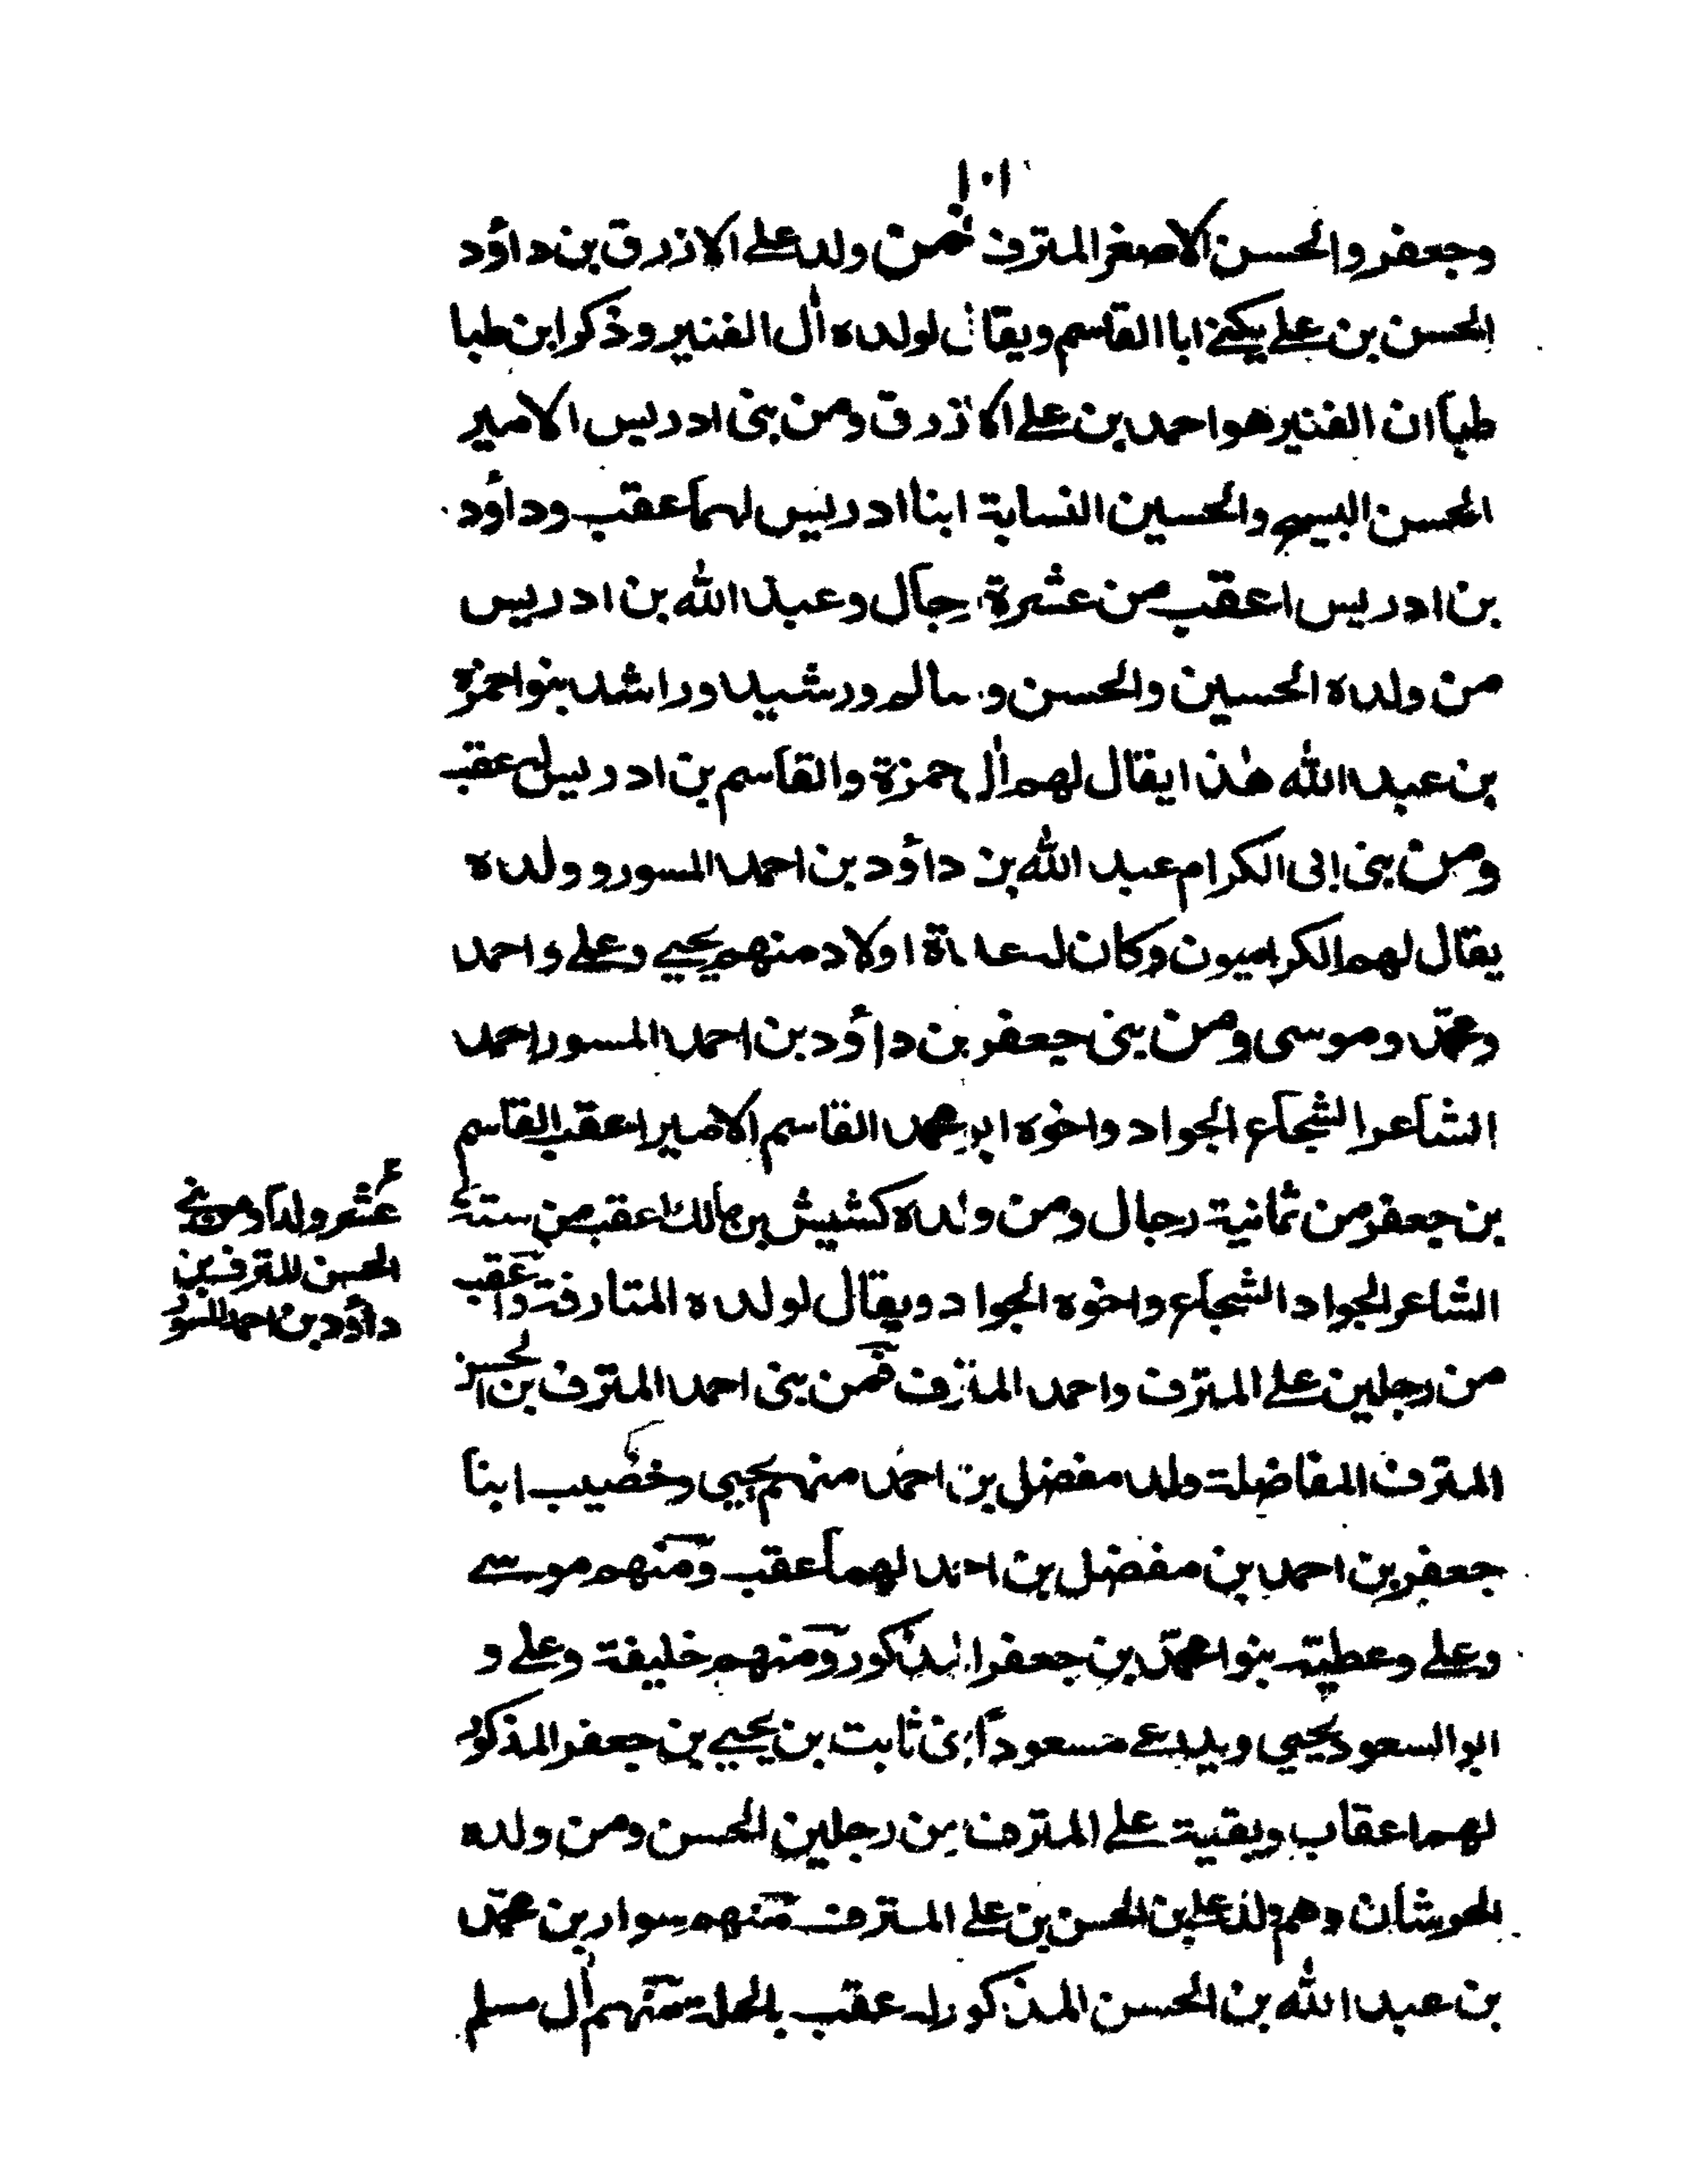 ١٠١
وجعفر والحسن الاصغر المترف فمن ولد علے الازرق بن داؤد
الحسن بن علے يكنے ابا القاسم ويقال لولده اٰل الفنير وذكر ابن طبا
طبا ان الفنير هو احمد بن علے الازرق ومن بنی ادريس الامير
الحسن والحسين النسابة ابنا ادريس لهما عقب وداؤد
بن ادريس اعقب من عشرة رجال وعبد الله بن ادريس
من ولده الحسين والحسن وسالم ورشيد وراشد بنوا حمزة
بن عبد الله هٰذا يقال لهم اٰل حمزة والقاسم بن ادريس له عقب
ومن بنی ابی الكرام عبد الله بن داؤد بن احمد المسور وولده
يقال لهم الكراميون وكان له عدة اولاد منهم يحيے وعلے واحمد
ومحمّد وموسى ومن بنی جعفر بن داؤد بن احمد المسور احمد
الشاعر الشجاع الجواد واخوه ابو محمد القاسم الامير اعقب القاسم
بن جعفر من ثمانية رجال ومن ولده كشيش بن مالك اعقب من ستة
عشر ولدا ومن بنے
الحسن المترف بن
داؤد بن احمد المسور
الشاعر الجواد الشجاع واخوه الجواد ويقال لولده المتارفة واعقب
من رجلين علے المترف واحمد المترف فمن بنی احمد المترف بن الحسن
المترف المفاضلة ولد مفضل بن احمد منهم يحيی وخضيب ابنا
جعفر بن احمد بن مفضل بن احمد لهما عقب ومنهم موسے
وعلے وعطية بنوا محمّد بن جعفر المذكور ومنهم خليفة وعلے و
ابو السعود يحيی ويدعے مسعودا بنی ثابت بن يحيے بن جعفر المذكور
لهما عقاب وبقية علے المترف من رجلين الحسن ومن ولده
الحوشان وهم ولد علے بن الحسن بن علے المترف منهم سوار بن محمّد
بن عبد الله بن الحسن المذكور له عقب بالحلة منهم اٰل مسلم